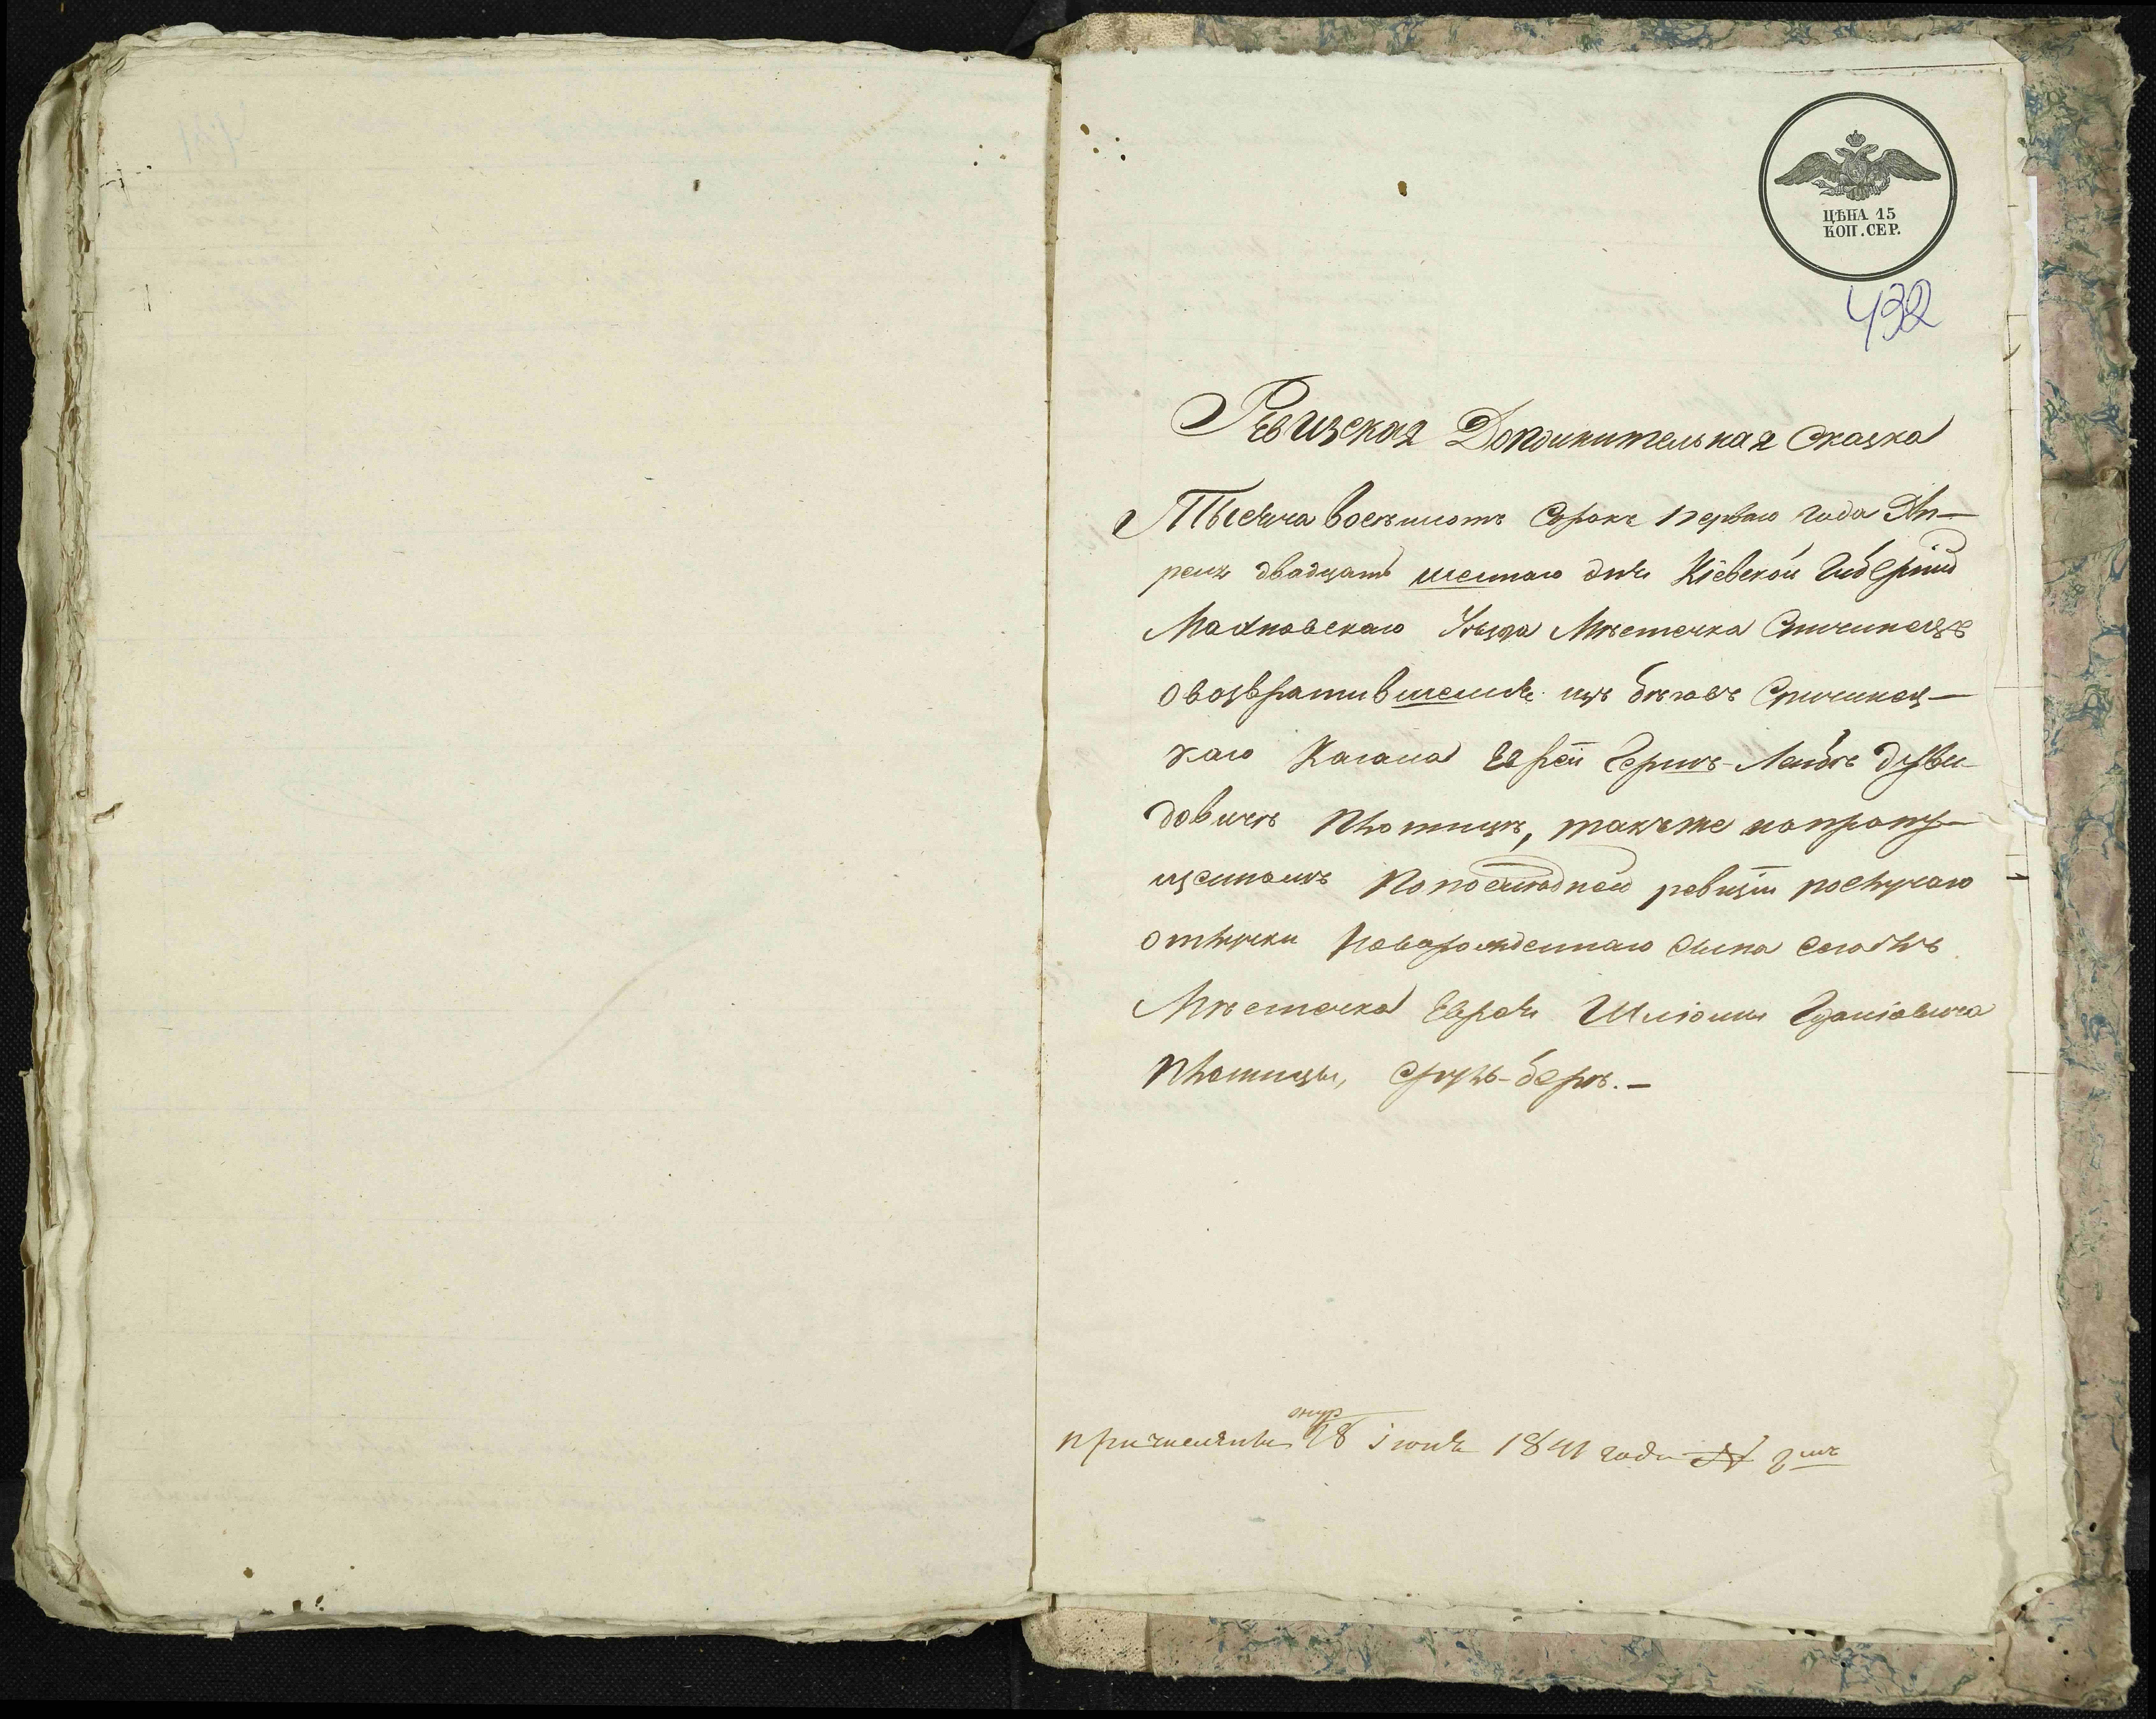 ЦѢНА 15
КОП. СЕР.
432
Ревизская Дополнительная Сказка
Тысяча восемьсотъ Сорокъ перваго года Ап-
реля двадцать шестаго дня Кіевской Губерніи
Махновскаго Уѣзда Мѣстечка Спичинецъ
о возвратившемся изъ бѣговъ Спичинец-
каго Кагала Еврей Гершъ-Лейбѣ Дуви-
довичѣ, также
по последней ревизіи по случаю
отлучки новорожденнаго сына сегожъ
Мѣстечка Еврея Шліомы
Сруль-Берѣ.-
причислены 18 іюня 1841 года N